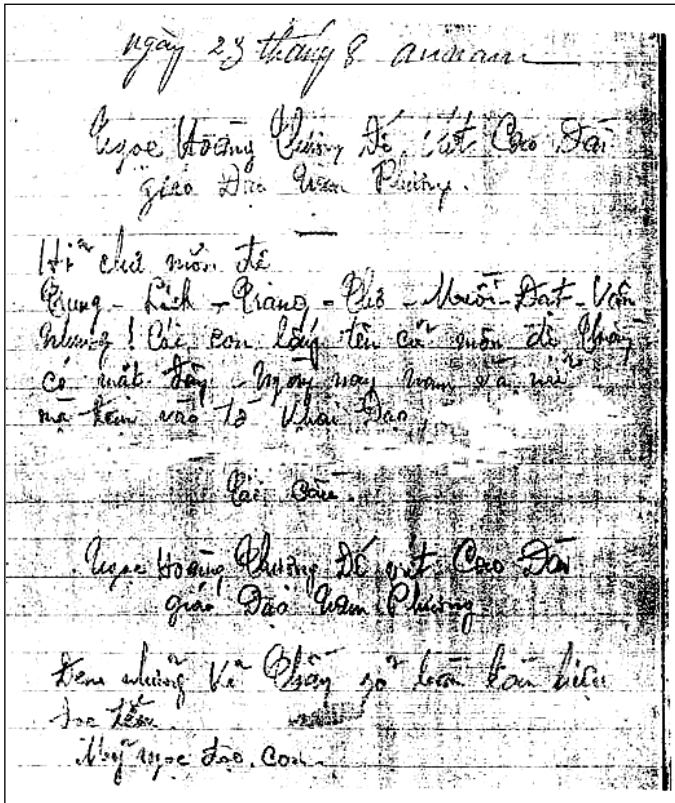 ngày 23 tháng 8 annam
Ngọc Hoàng Thượng Đế viết Cao Đài
giáo Đạo Nam Phương.
Hỉ chư môn đệ
Trung - Lịch - Giang - Thơ - Mười - Đạt - Văn
Nhung! Các con lấy tên cả môn đệ Thầy
có mặt đây ngày nay nam và nữ
mà đem vào tờ Khai Đạo
Tái cầu.
Ngọc Hoàng Thượng Đế viết Cao Đài
giáo Đạo Nam Phương.
Đem những Thầy
đọc
Mỹ ngọc đạo con.